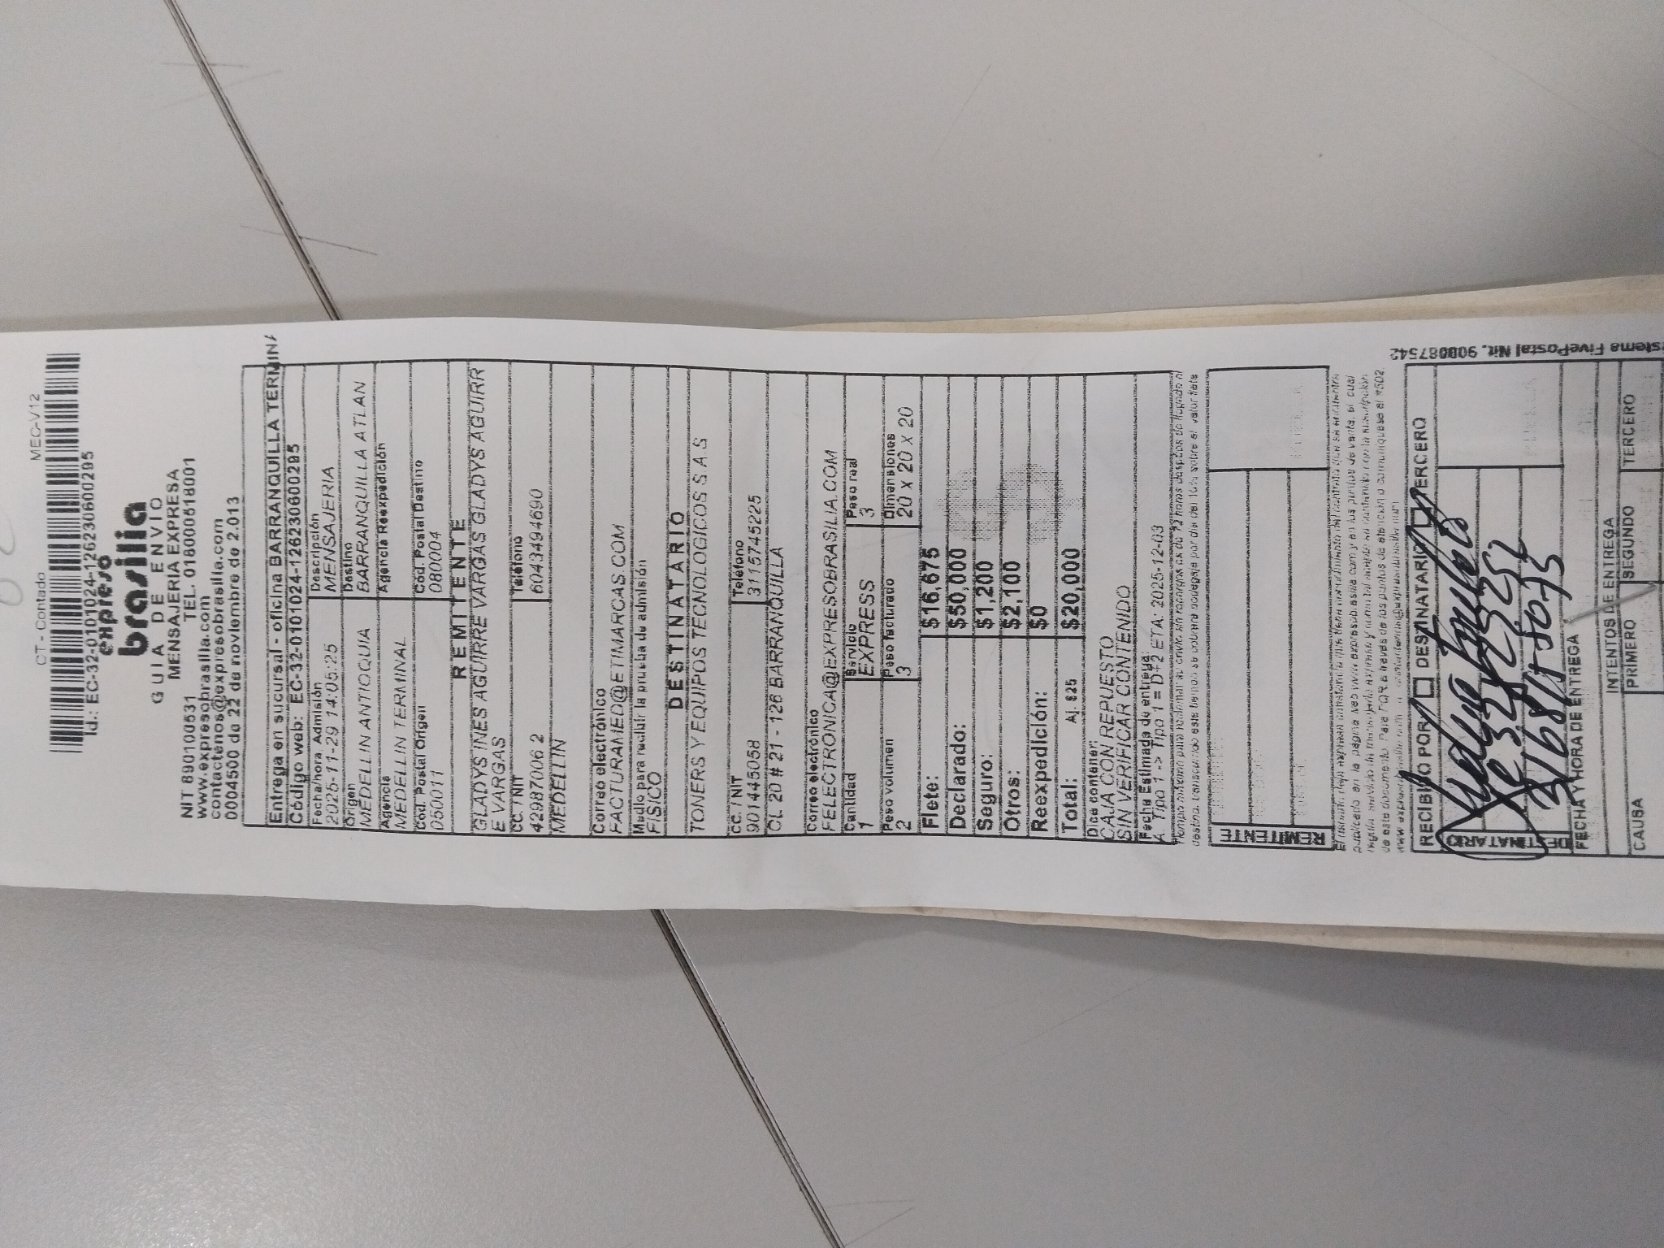 CT - Contado MEC-V12
Id.: EC-32-0101024-12623060​0295
expreso
brasilia
GUIA DE ENVIO
MENSAJERIA EXPRESA
NIT 890100531 TEL. 018000518001
www.expresobrasilia.com
contactenos@expresobrasilia.com
0004500 de 22 de noviembre de 2.013
Entrega en sucursal - oficina BARRANQUILLA TERMINA
Código web: EC-32-0101024-126230600295
Fecha/hora Admisión Descripción
2025-11-29 14:05:25 MENSAJERIA
Origen Destino
MEDELLIN ANTIOQUIA BARRANQUILLA ATLAN
Agencia Agencia Reexpedición
MEDELLIN TERMINAL
Cód. Postal Origen Cód. Postal Destino
050011 080004
REMITENTE
GLADYS INES AGUIRRE VARGAS GLADYS AGUIRR
E VARGAS
CC. / NIT Teléfono
42987006 2 6043494690
MEDELLIN
Correo electrónico
FACTURAMED@ETIMARCAS.COM
Medio para recibir la prueba de admisión
FISICO
DESTINATARIO
TONERS Y EQUIPOS TECNOLOGICOS S A S
CC. / NIT Teléfono
901445058 3115745225
CL 20 # 21 - 126 BARRANQUILLA
Correo electrónico
FELECTRONICA@EXPRESOBRASILIA.COM
Cantidad Servicio Peso real
1 EXPRESS 3
Peso volumen Peso facturado Dimensiones
2 3 20 x 20 x 20
Flete: $16,675
Declarado: $50,000
Seguro: $1,200
Otros: $2,100
Reexpedición: $0
Total: Aj. $25 $20,000
Dice contener:
CAJA CON REPUESTO
SIN VERIFICAR CONTENIDO
Fecha Estimada de entrega
A Tipo 1 -> Tipo 1 = D+2 ETA: 2025-12-03
REMITENTE
Sistema FivePostal Nit. 900087542
RECIBIDO POR: DESTINATARIO TERCERO
DESTINATARIO
FECHA Y HORA DE ENTREGA
INTENTOS DE ENTREGA
PRIMERO SEGUNDO TERCERO
CAUSA